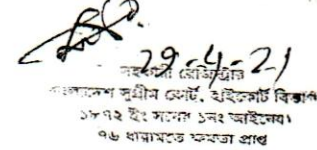 29-4-21
সহকারী রেজিস্ট্রার
বাংলাদেশ সুপ্রীম কোর্ট, হাইকোর্ট বিভাগ
১৮৭২ ইং সনের ১নং আইনের।
৭৬ ধারামতে ক্ষমতা প্রাপ্ত